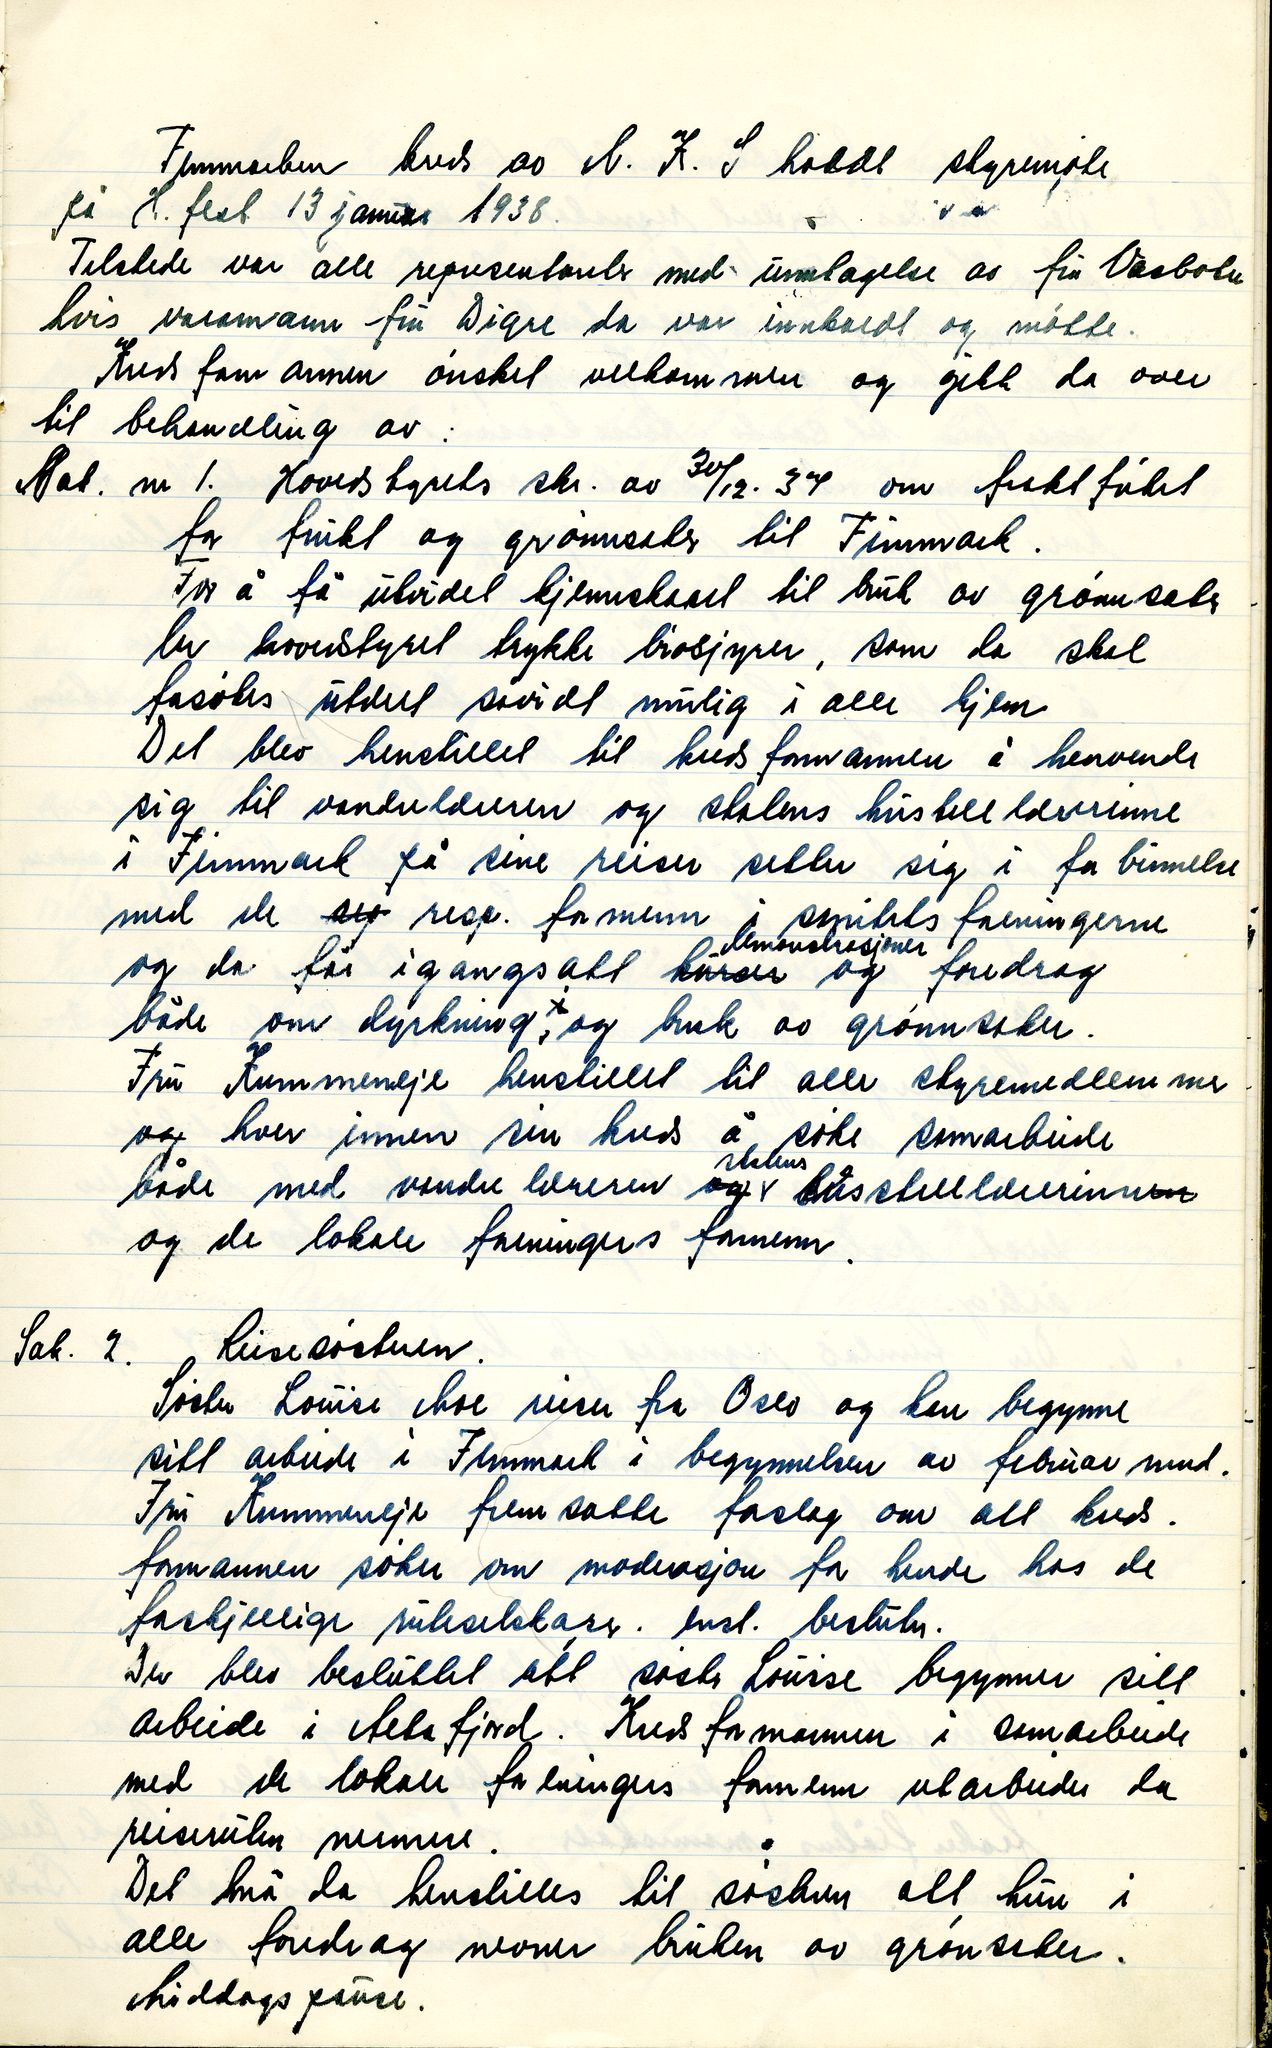 Finnmarken kreds av N. K. S holdt styremøte
på H.fest 13 januar 1938.
Tilstede var alle representanter med unntagelse av fru Vasbotn
hvis varamann fru Digre da var innkaldt og møtte.
Kredsformannen ønsket velkommen og gikk da over
til behandling av :
Sak. nr 1. Hovedstyrets skr. av 30/12. 37 om fraktfritt
for frukt og grønnsaker til Finnmark.
For å få utvidet kjennskap til bruk av grønnsaker
lar hovedstyret trykke brosjyrer, som da skal
forsøkes utdelt såvidt mulig i alle hjem
Det blev henstillet til kredsformannen å henvende
sig til vandrelæreren og statens hustellærerinne
i Finnmark på sine reiser setter sig i forbinnelse
med de resp. formenn i sanitetsforeningerne
og da får igangsatt kurser demonstrasjoner og foredrag
både om dyrkning, og bruk av grønnsaker.
Fru Kummeneje henstillet til alle styremedlemmer
og hver innen sin kreds å søke samarbeide
både med vandrelæreren og statens husstellærerinnen
og de lokale foreningers formenn.
Sak. 2. Reisesøsteren.
Søster Louise Moe reiser fra Oslo og kan begynne
sitt arbeide i Finnmark i begynnelsen av februar mnd.
Fru Kummeneje fremsatte forslag om att kreds.
formannen søker om moderasjon for hende hos de
forskjellige ruteselskaper. enst. besluttn.
Der blev besluttet att søster Louise begynner sitt
arbeide i Altafjord. Kredsformannen i samarbeide
med de lokale foreningers formenn utarbeider da
reiseruten nermere.
Det må da henstilles til søsteren att hun i
alle foredrag nevner bruken av grønsaker.
Middagspause.